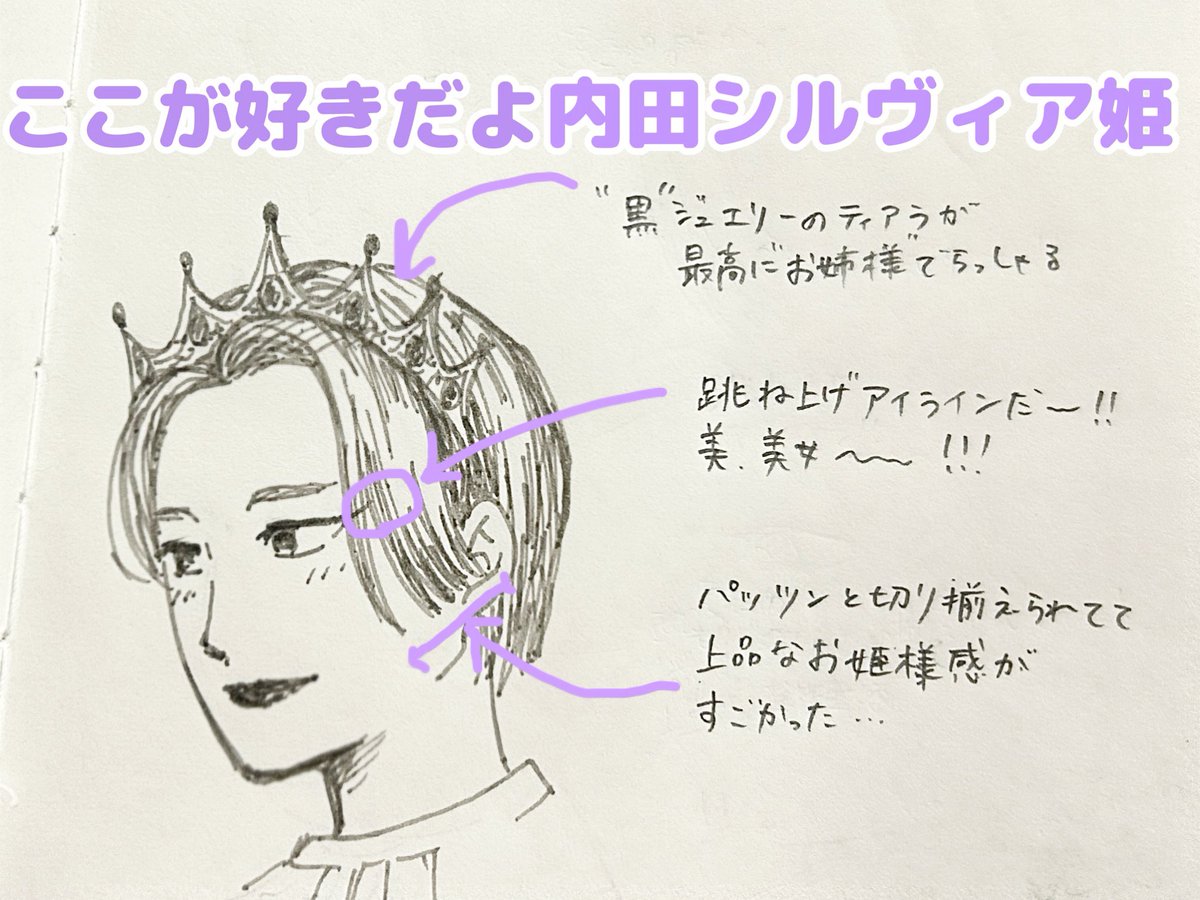 ここが好きだよ内田シルヴィア姫
"黒"ジュエリーのティアラが
最高にお姉様でらっしゃる
跳ね上げアイラインだ〜!!
美.美女〜〜!!!
パッツンと切り揃えられてて
上品なお姫様感が
すごかった…